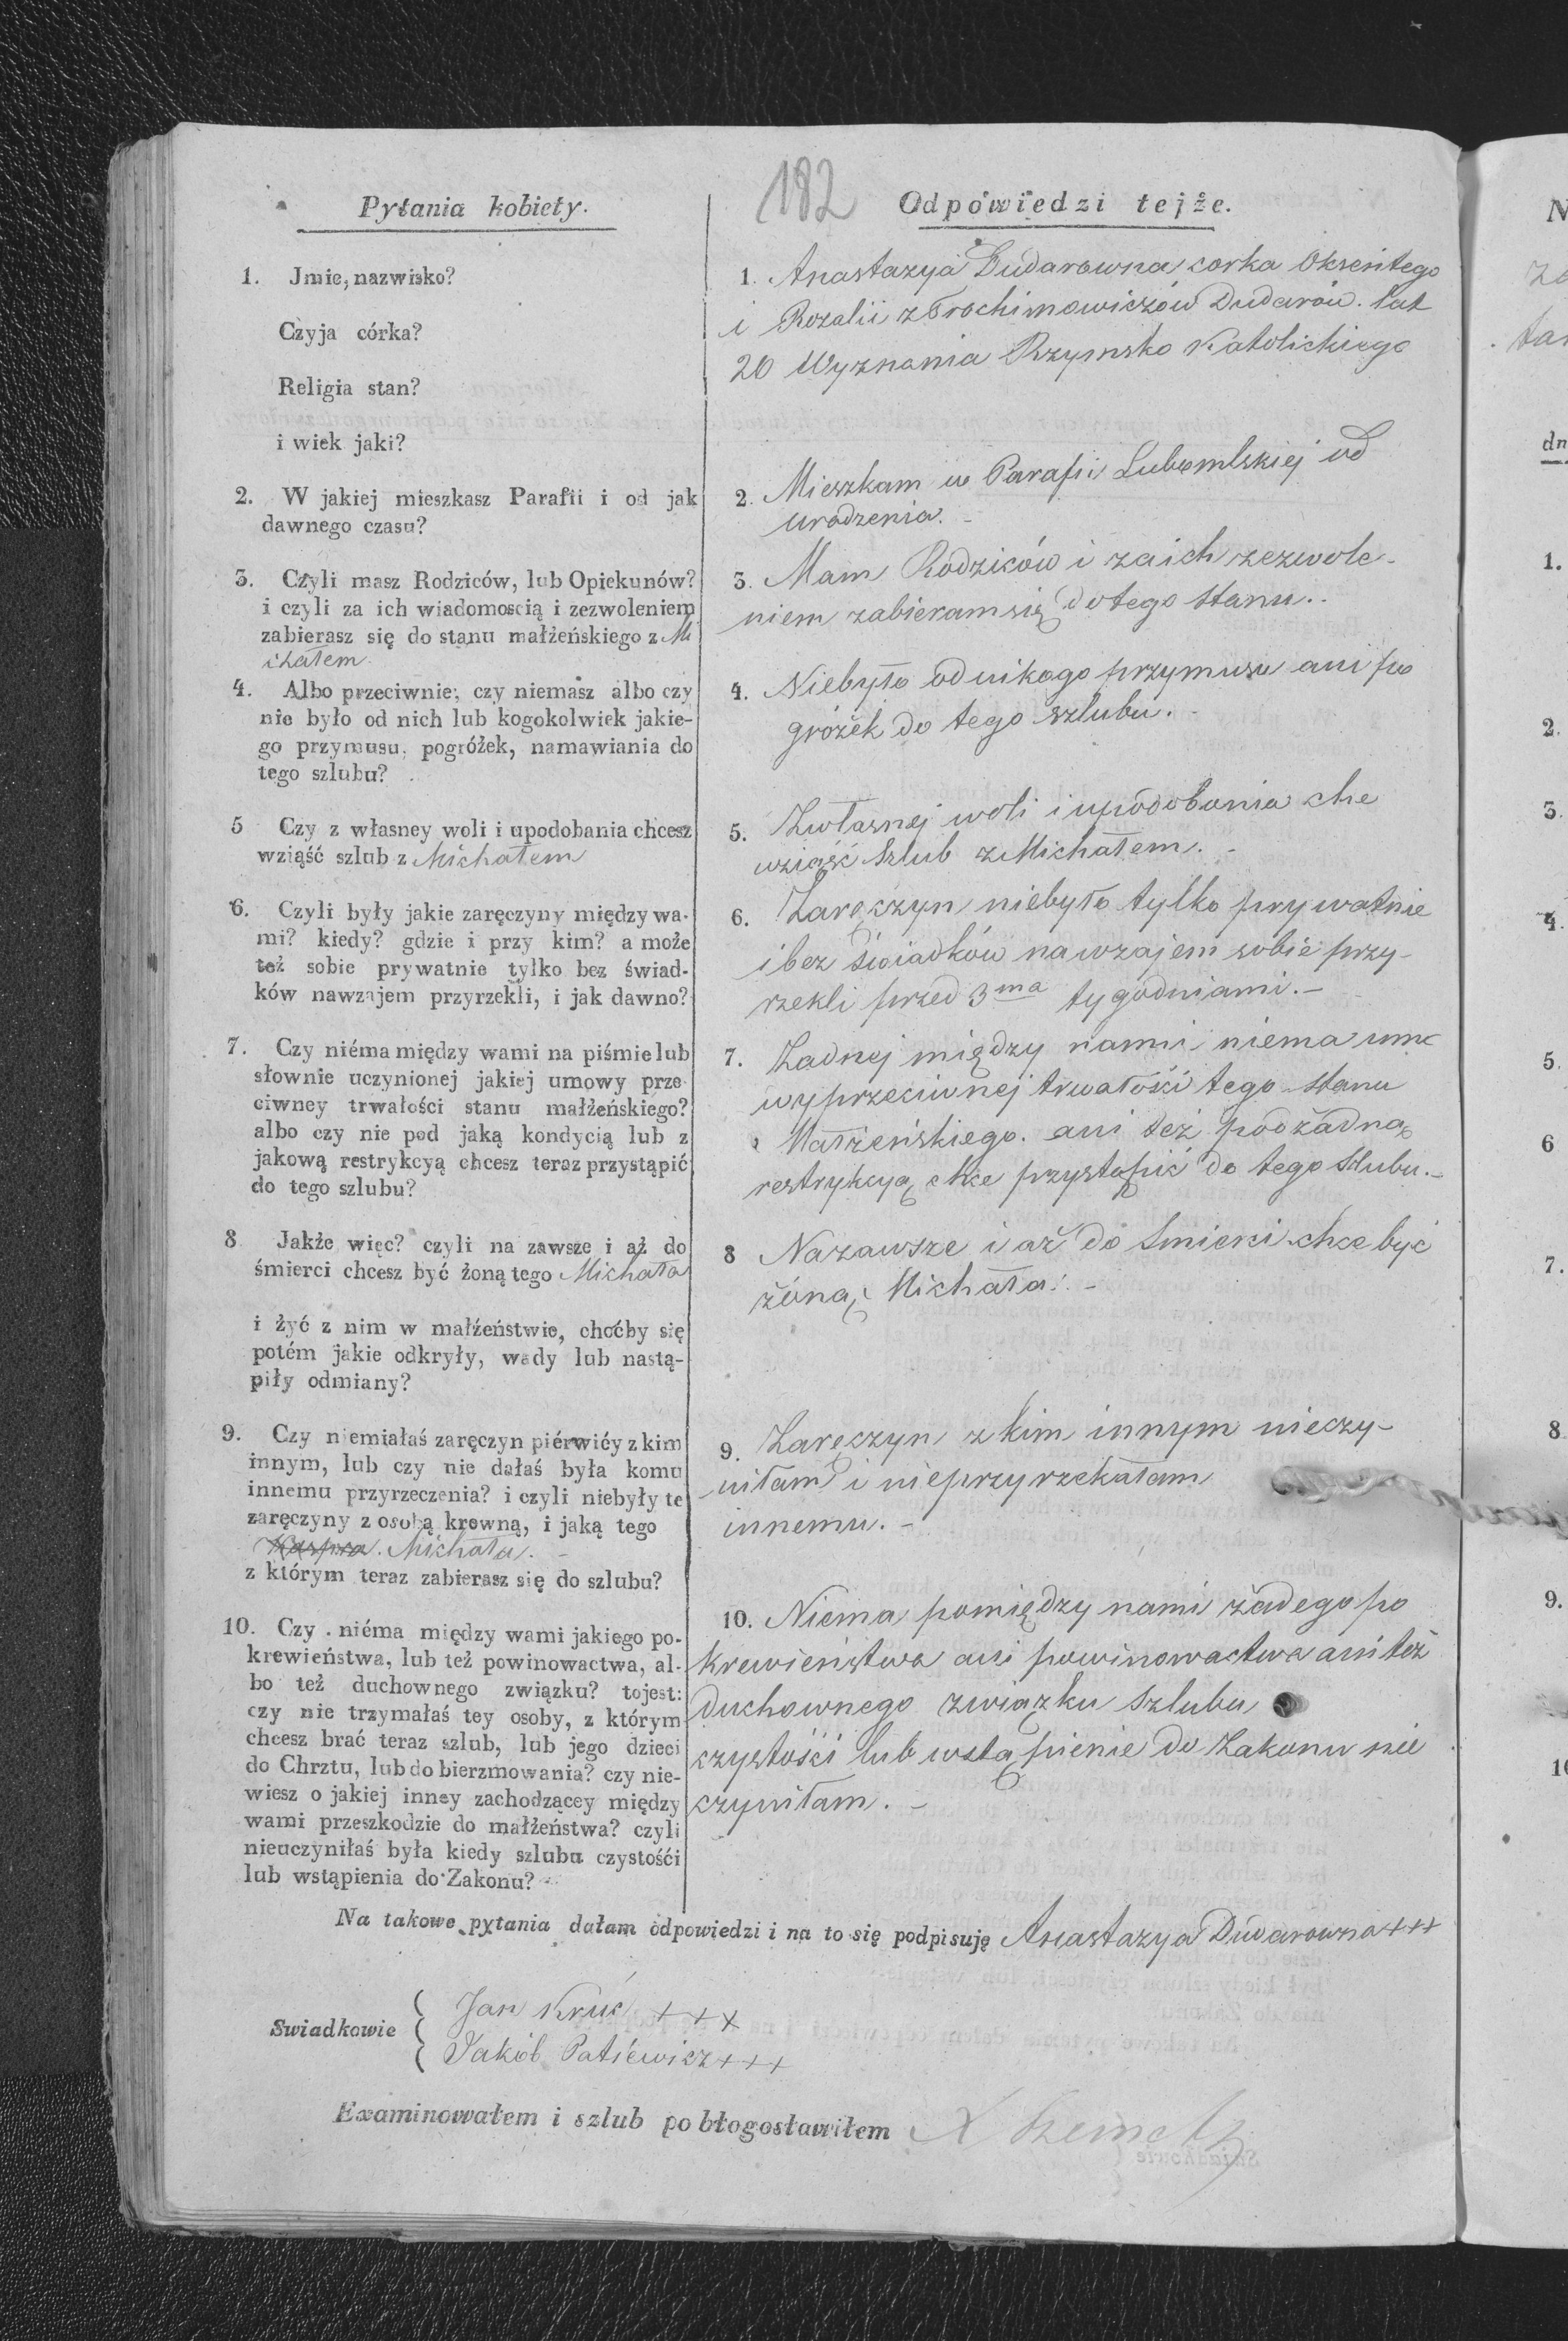 182
Pytania kobiety.
1. Jmie, nazwisko?
Czyja córka?
Religia stan?
i wiek jaki?
2. W jakiej mieszkasz Parafii i od jak
dawnego czasu?
3. Czyli masz Rodziców, lub Opiekunów?
i czyli za ich wiadomoscią i zezwoleniem
zabierasz się do stanu małżeńskiego z Mi
chałem
4. Albo przeciwnie, czy niemasz albo czy
nie było od nich lub kogokolwiek jakie-
go przymusu, pogróżek, namawiania do
tego szlubu?
5 Czy z własney woli i upodobania chcesz
wziąść szlub z Michałem
6. Czyli były jakie zaręczyny między wa-
mi? kiedy? gdzie i przy kim? a może
też sobie prywatnie tylko bez świad-
ków nawzajem przyrzekli, i jak dawno?
7. Czy niéma między wami na piśmie lub
słownie uczynionej jakiej umowy prze
ciwney trwałości stanu małżeńskiego?
albo czy nie pod jaką kondycią lub z
jakową restrykcyą chcesz teraz przystąpić
do tego szlubu?
8 Jakże więc? czyli na zawsze i aż do
śmierci chcesz być żoną tego Michała
i żyć z nim w małżeństwie, choćby się
potém jakie odkryły, wady lub nastą-
piły odmiany?
9. Czy niemiałaś zaręczyn piérwiéy z kim
innym, lub czy nie dałaś była komu
innemu przyrzeczenia? i czyli niebyły te
zaręczyny z osobą krewną, i jaką tego
Michała.
z którym teraz zabierasz się do szlubu?
10. Czy niéma między wami jakiego po-
krewieństwa, lub też powinowactwa, al-
bo też duchownego związku? tojest:
czy nie trzymałaś tey osoby, z którym
chcesz brać teraz szlub, lub jego dzieci
do Chrztu, lub do bierzmowania? czy nie-
wiesz o jakiej inney zachodzącey między
wami przeszkodzie do małżeństwa? czyli
nieuczyniłaś była kiedy szlubu czystośći
lub wstąpienia do Zakonu?
Odpówiedzi tejże.
1. Anastazya Dudarowna corka Oksentego
i Rozalii z Trochimowiczów Dudarów. lat
20 Wyznania Rzymsko Katolickiego
2. Mieszkam w Parafii Lubomlskiej od
urodzenia.
3. Mam Rodziców i zaich zezwole-
niem zabieram się do tego stanu.
4. Niebyło od nikogo przymusu ani po
gróżek do tego szlubu.
5. Zwłasnej woli i upodobania chce
wziąść szlub z Michałem.
6. Zaręczyn niebyło tylko prywatnie
i bez świadków nawzajem sobie przy-
rzekli przed 3ma tygodniami.-
7. Żadnej między nami niema umo
wy przeciwnej trwałości tego stanu
Małżeńskiego. ani też pod żadną
restrykcyą chce przystąpić do tego szlubu.-
8 Nazawsze i aż do smierci chce być
żoną Michała.-
9. Zaręczyn z kim innym nieczy-
niłam i nieprzyrzekałam
innemu.-
10. Niema pomiędzy nami żadego po
krewieństwa ani powinowactwa ani też
duchownego związku szlubu
czystości lub wstąpienie do Zakonu nie
czyniłam.-
Na takowe pytania dałam odpowiedzi i na to się podpisuję Anastazya Dudarowna +++
Swiadkowie
Jan Kruć +++
Jakób Patiewicz +++
Examinowałem i szlub pobłogosławiłem